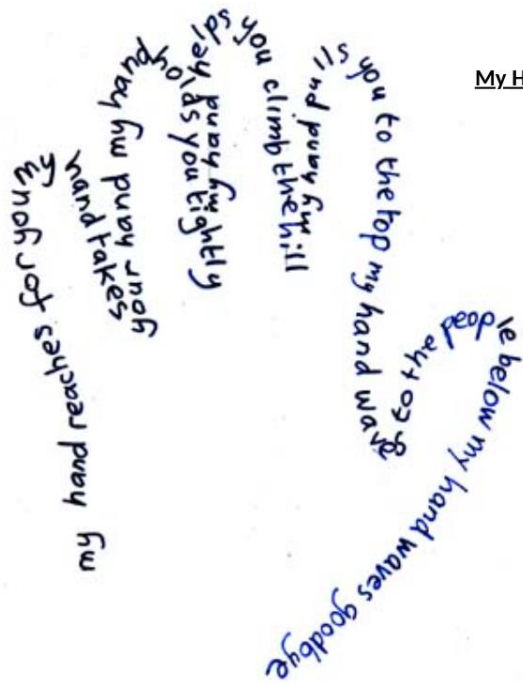 My H
my hand reaches for your
my hand takes
your hand my hand holds you tightly
my hand helps you climb the hill
my hand pulls you to the top my hand waves to the people below my hand waves goodbye